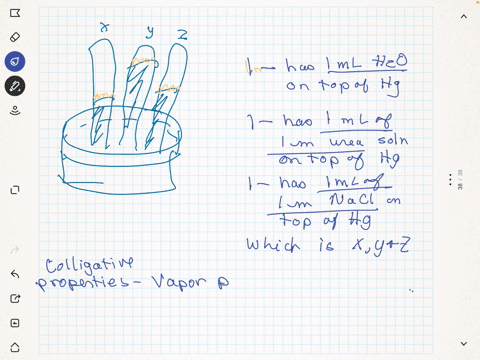 x y z
1 - has 1 mL H2O
on top of Hg
1 - has 1 mL of
1 m urea soln
on top of Hg
1 - has 1 mL of
1 m NaCl on
top of Hg
Which is X, Y + Z
Colligative
properties - Vapor p